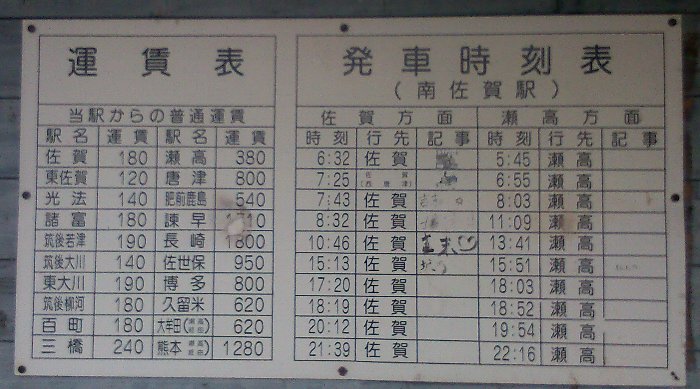 運賃表
当駅からの普通運賃
駅名 運賃 駅名 運賃
佐賀 180 瀬高 380
東佐賀 120 唐津 800
光法 140 肥前鹿島 540
諸富 180 諫早
筑後若津 190 長崎 1800
筑後大川 140 佐世保 950
東大川 190 博多 800
筑後柳河 180 久留米 620
百町 180 大牟田(瀬高経由) 620
三橋 240 熊本(瀬高経由) 1280
発車時刻表
(南佐賀駅)
佐賀方面 瀬高方面
時刻 行先 記事 時刻 行先 記事
6:32 佐賀 5:45 瀬高
7:25 佐賀(西唐津) 6:55 瀬高
7:43 佐賀 8:03 瀬高
8:32 佐賀 11:09 瀬高
10:46 佐賀 13:41 瀬高
15:13 佐賀 15:51 瀬高
17:20 佐賀 18:03 瀬高
18:19 佐賀 18:52 瀬高
20:12 佐賀 19:54 瀬高
21:39 佐賀 22:16 瀬高